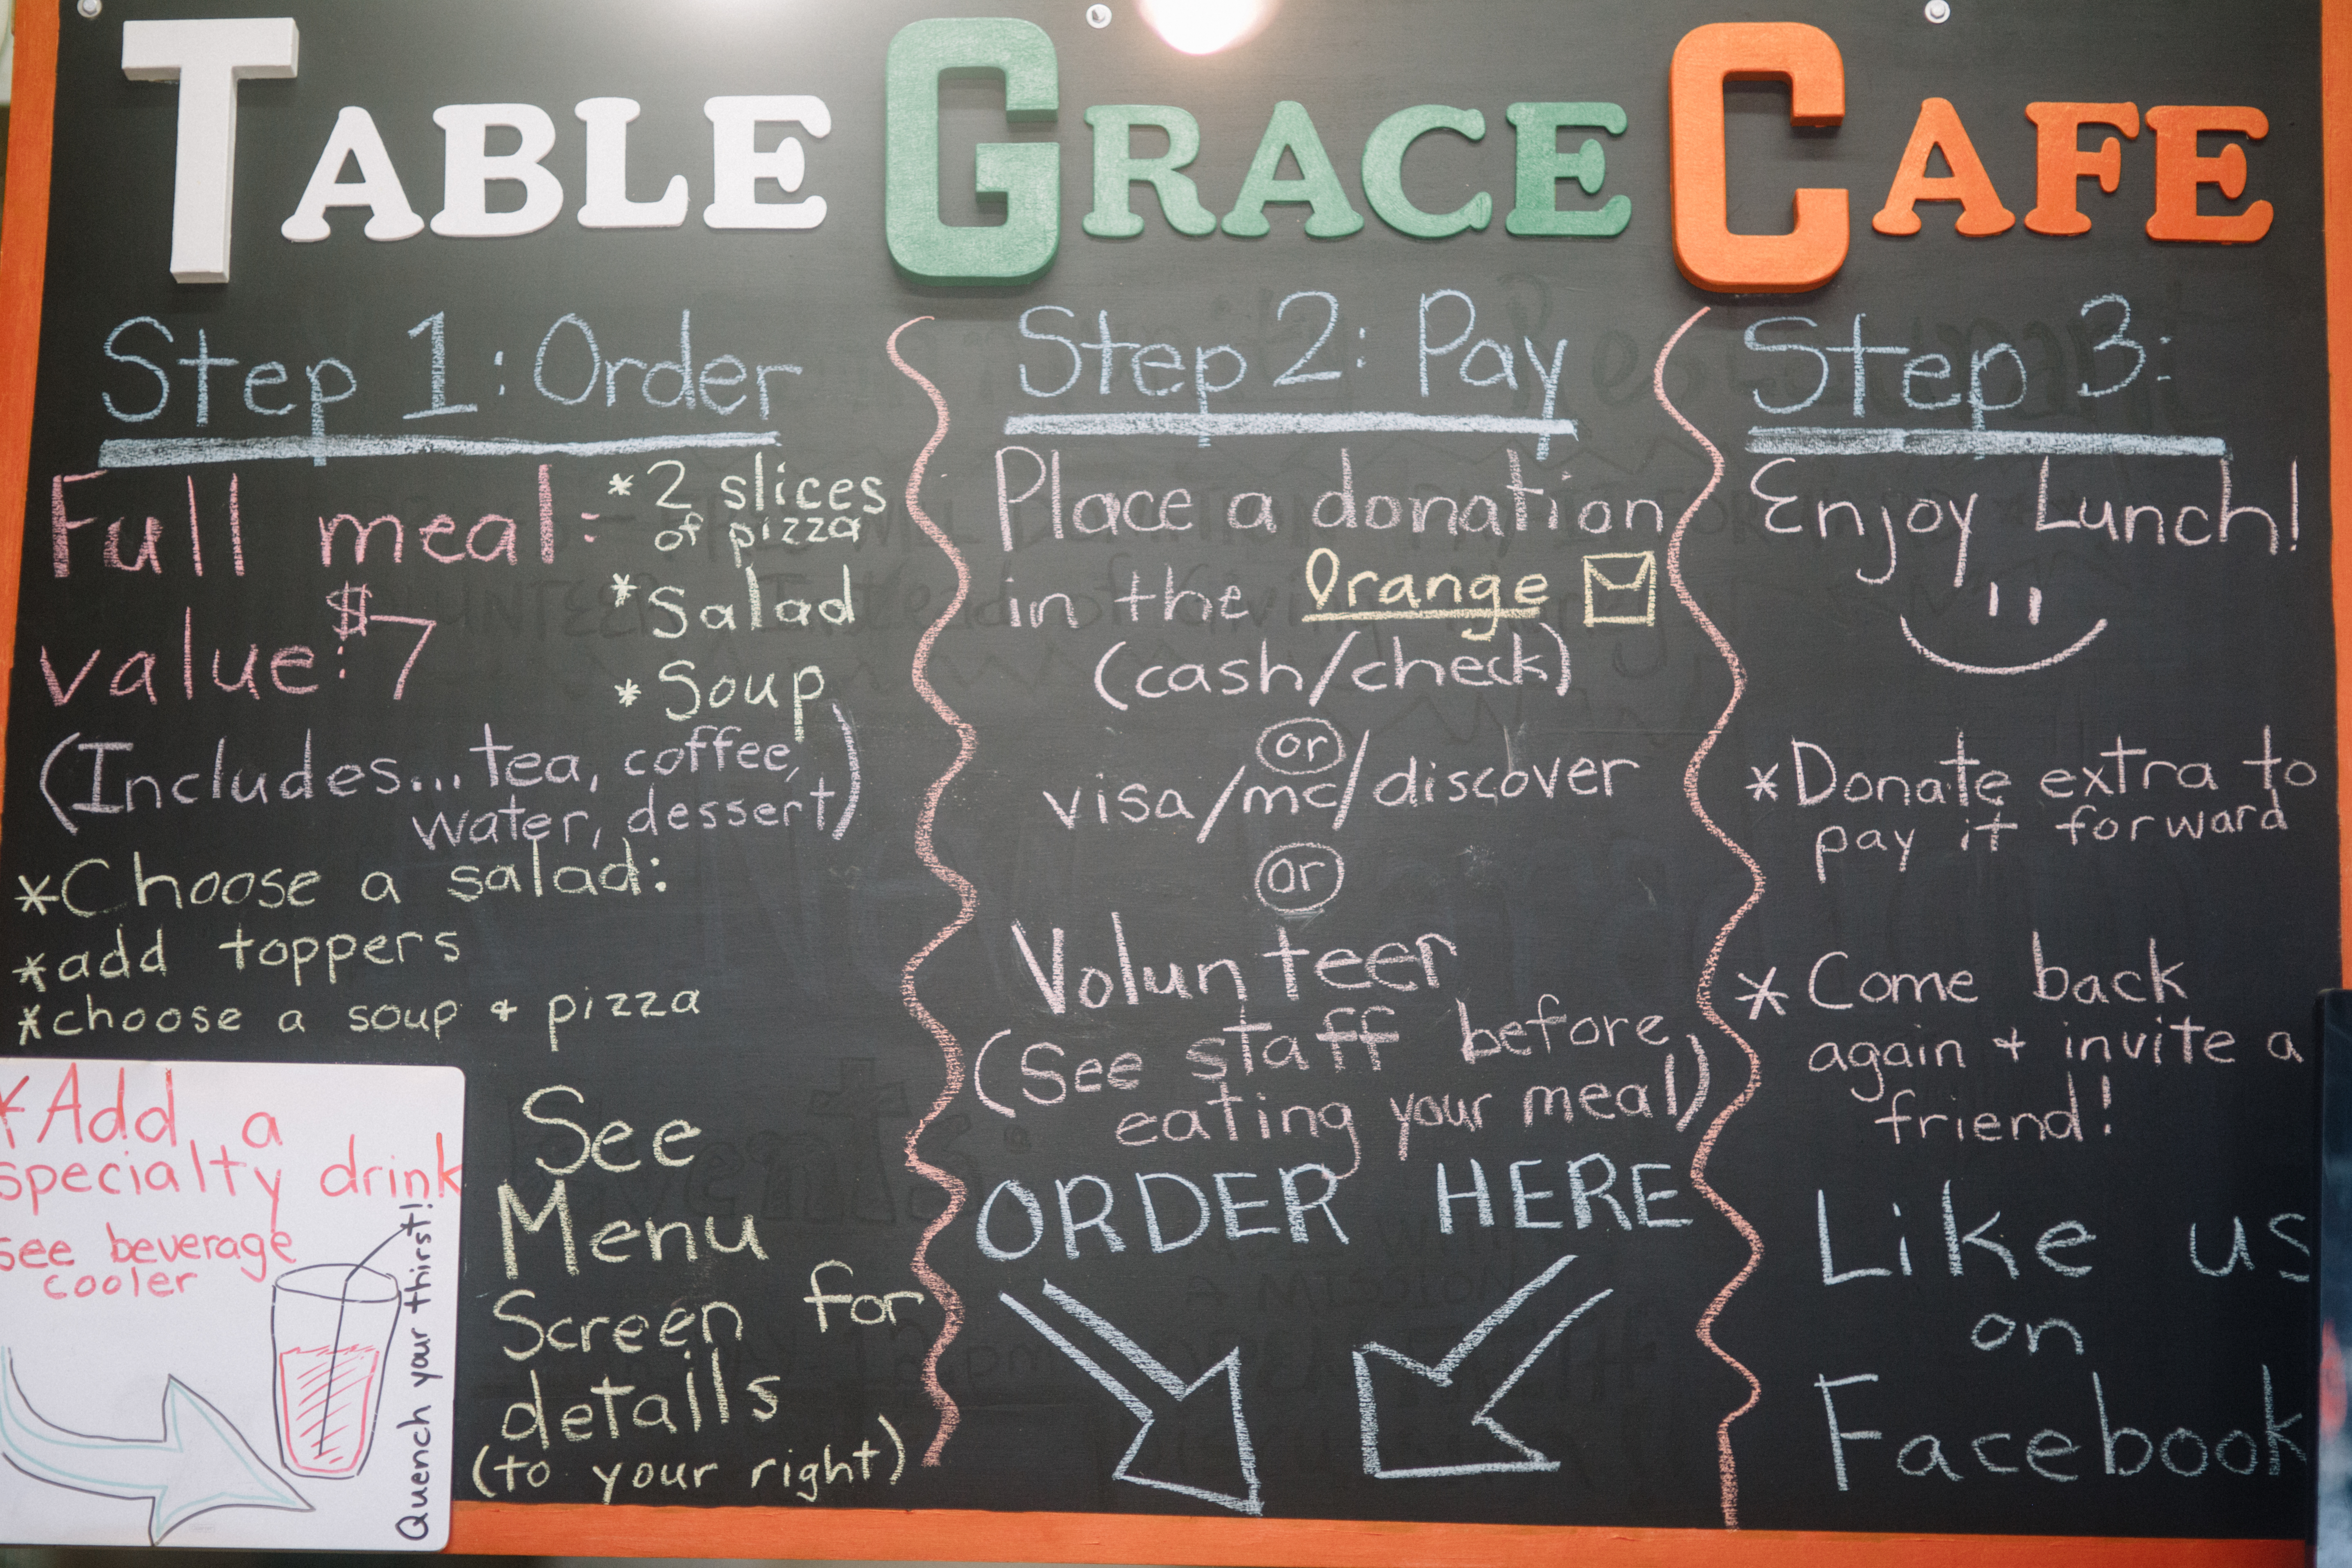 TABLE GRACE CAFE
Step 1: Order
Full meal:
value: $7
* 2 slices
of pizza
* Salad
* Soup
(Includes... tea, coffee,
water, dessert)
*Choose a salad:
*add toppers
*choose a soup + pizza
*Add a
specialty drink
see beverage
cooler
Quench your thirst!
See
Menu
Screen for
details
(to your right)
Step 2: Pay
Place a donation
in the Orange
(cash/check)
or
visa/mc/discover
or
Volunteer
(See staff before
eating your meal)
ORDER HERE
Step 3:
Enjoy Lunch!
*Donate extra to
pay it forward
* Come back
again + invite a
friend!
Like us
on
Facebook